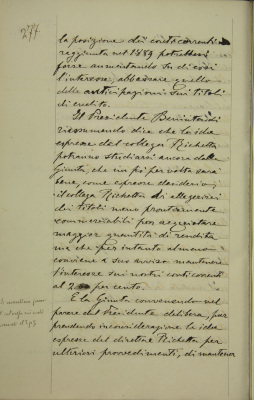 277
la posizione dei conti correnti
raggiunta nel 1889 potrebbesi
forse aumentando su di essi
l'interesse, abbassare quello
delle anticipazioni sui titoli
di credito.
Il Presidente Beninten di
riassumendo dice che le idee
espresse dal collega Richetta
potranno studiarsi ancora dalla
Giunta, che un po' per volta sarà
bene, come espresse desiderio
il collega Richetta di alleggerirsi
dei titoli meno prontamente
commerciabili per acquistare
maggior quantità di rendita
ma che per intanto almeno
conviene a suo avviso mantenere
l'interesse sui nostri conti correnti
al 2 per cento.
E la Giunta convenendo nel
parere del Presidente delibera, pur
prendendo in considerazione le idee
espresse dal direttore Richetta per
ulteriori provvedimenti, di mantener